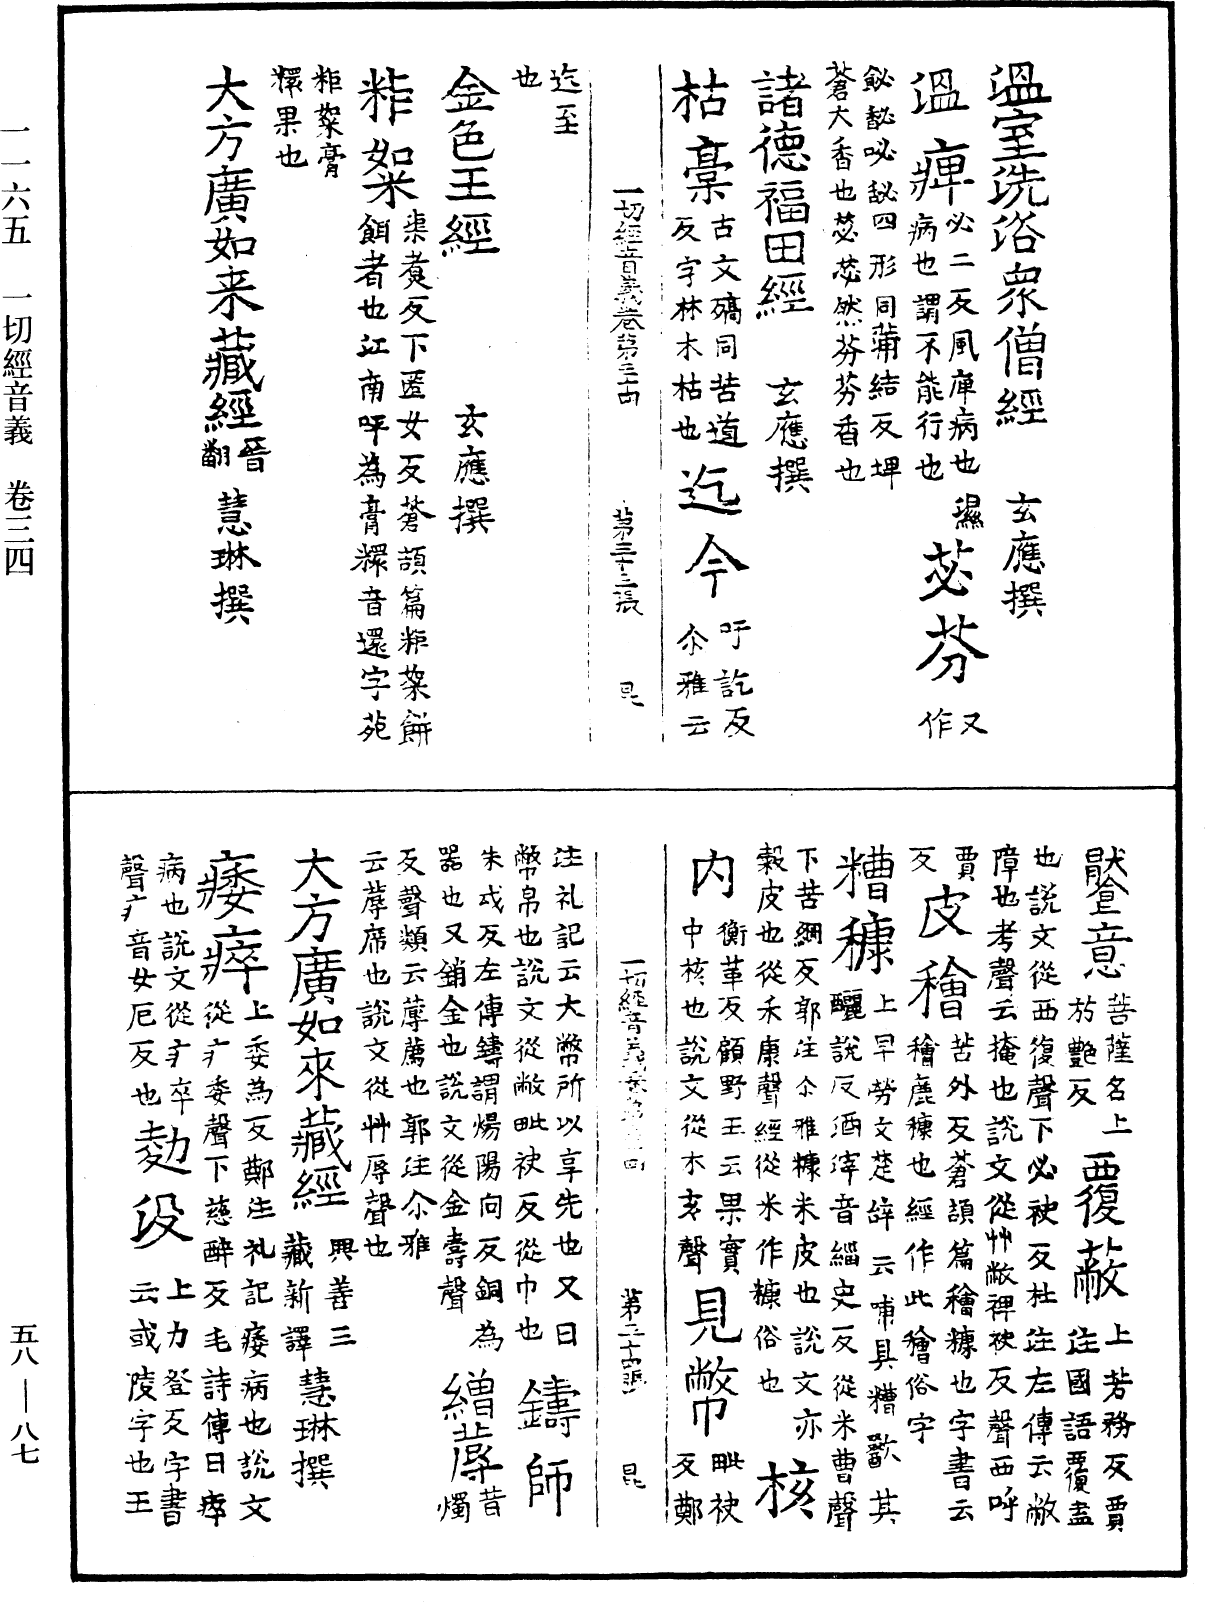 一一六五　一切經音義　卷三四
溫室洗浴衆僧經　玄應撰
溫痺必二反風痺病也濕病也謂不能行也苾芬又作
飶馝咇䛑四形同蒲結反埤蒼大香也苾苾然芬芬香也
諸德福田經　玄應撰
枯槀古文𣩍同苦道反字林木枯也迄今吁訖反尒雅云
一切經音義卷第三十四　第三十三張　昆
迄至也
金色王經　玄應撰
粔䊆渠煑反下匿女反蒼頡篇粔䊆餅餌者也江南呼為膏糫音還字苑
粔䊆膏糫果也
大方廣如来藏經晉翻　慧琳撰
猒意菩薩名上於艷反覆蔽上芳務反賈注國語覆盖
也說文從襾復聲下必袂反杜注左傳云蔽
障也考聲云掩也說文從艸敝裨袂反聲襾呼
賈反皮糩苦外反蒼頡篇糩糠也字書云糩麁糠也經作此䅥俗字
糟糠上早勞文楚辭云哺其糟歠其醨說反酒滓音緇史反從米曹聲
下苦綱反郭注尒雅糠米皮也說文亦
穀皮也從禾康聲經從米作糠俗也核
内衡革反顧野王云果實中核也說文從木亥聲見幣毗袂反鄭
一切經音義卷第三十四　第三十四張　昆
注礼記云大幣所以享先也又曰
幣帛也說文從敝毗袂反從巾也鑄師
朱戍反左傳鑄謂煬陽向反銅為
器也又銷金也說文從金壽聲繒蓐昔燭
反聲類云蓐薦也郭注尒雅
云蓐席也說文從艸辱聲也
大方廣如來藏經興善三藏新譯　慧琳撰
痿瘁上委為反鄭注礼記痿病也說文從疒委聲下慈醉反毛詩傳曰瘁
病也說文從疒卒聲疒音女厄反也勑段上力登反字書云或陵字也王
五八—八七